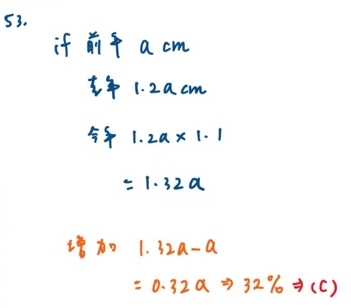 53.
if 前年 a cm
去年 1.2a cm
今年 1.2a × 1.1
= 1.32a
增加 1.32a - a
= 0.32a ⇒ 32% ⇒ (C)